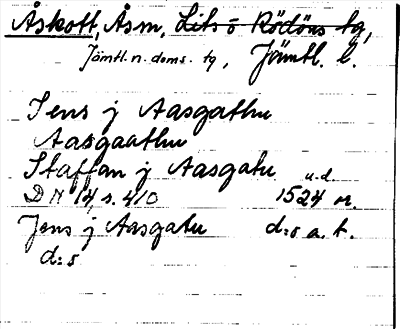 Åskott, Åsm, Lits o Rödöns tg,
Jämtl. n. doms. tg, Jämtl. l.
Jens j Aasgathu
Aasgaathu
Staffan j Aasgatu u.d.
DN 14, s. 410 1524 m.
Jens j Aasgatu d:o a. t.
d:o